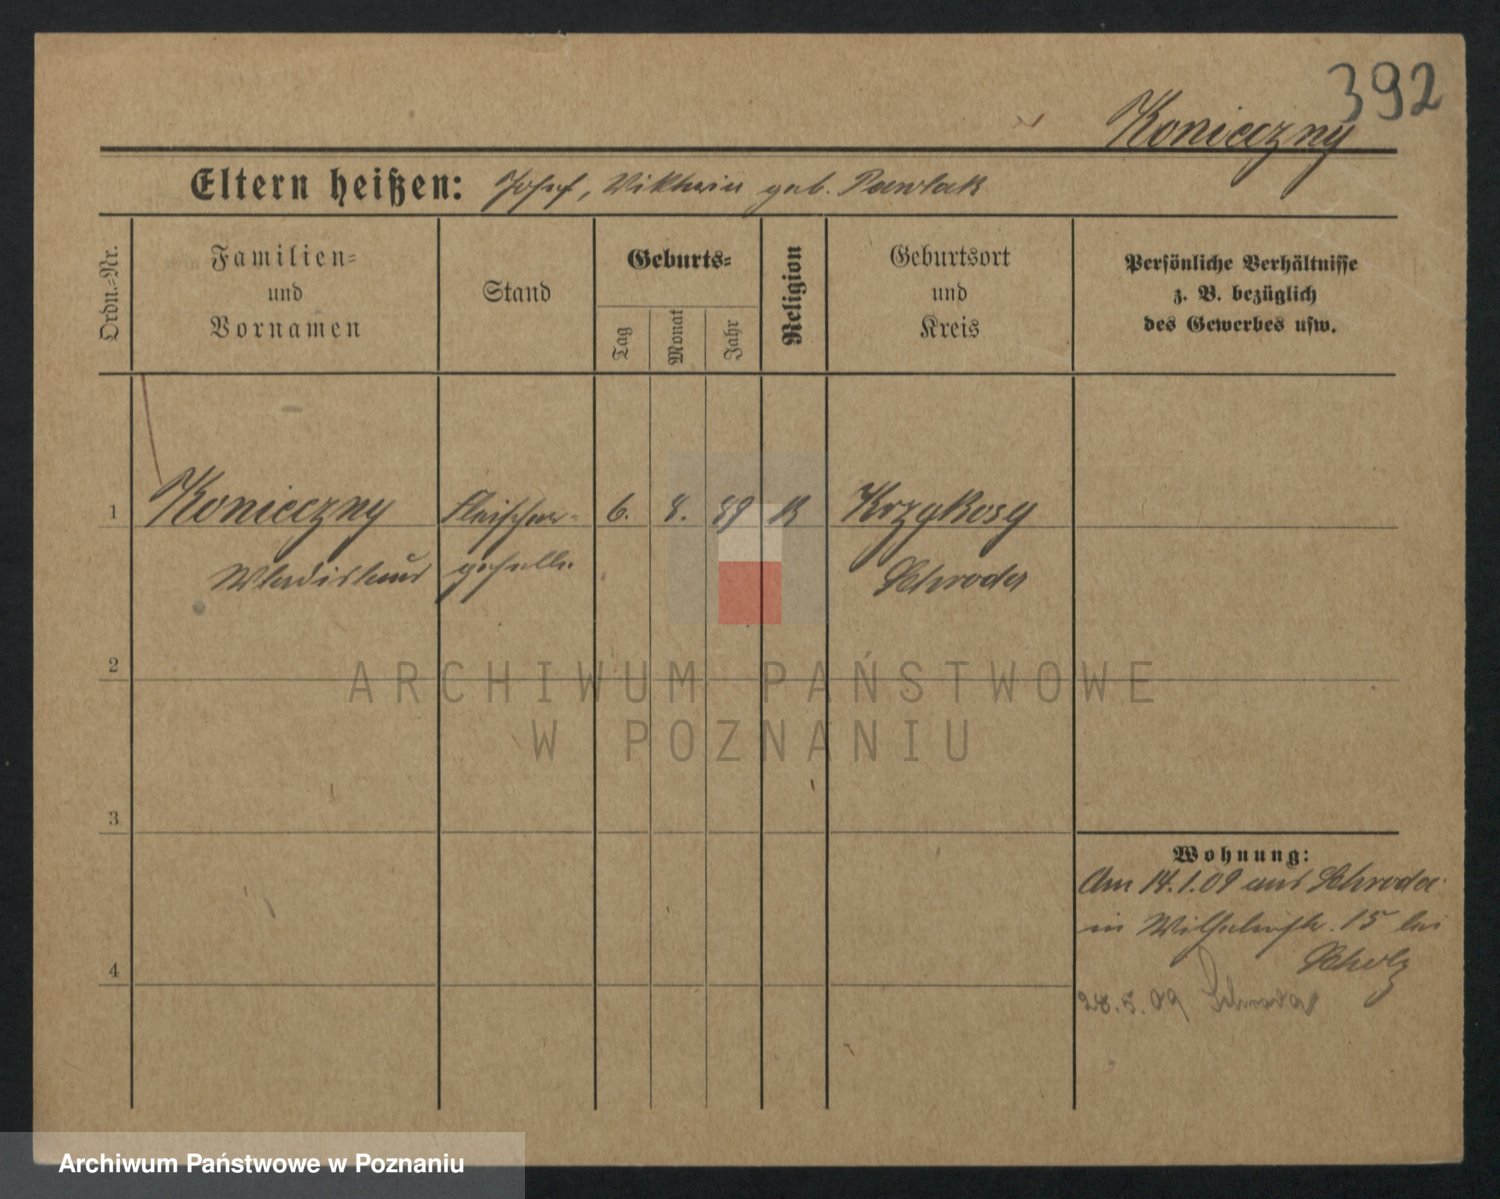 392
Konieczny
Eltern heißen: Josef, Viktoria geb. Pawlak
Ordn.-Nr.
Familien-
und
Vornamen
Stand
Geburts-
Tag
Monat
Jahr
Religion
Geburtsort
und
Kreis
Persönliche Verhältnisse
z. B. bezüglich
des Gewerbes usw.
1 Konieczny Fleischer- 6. 8. 89 K Krzykosy
Wladislaus geselle Schroda
2
ARCHIWUM PAŃSTWOWE
W POZNANIU
3
Wohnung:
Am 14.1.09 aus Schroda
in Wilhelmstr. 15 bei
Scholz
4
28.5.09 Schroda
Archiwum Państwowe w Poznaniu